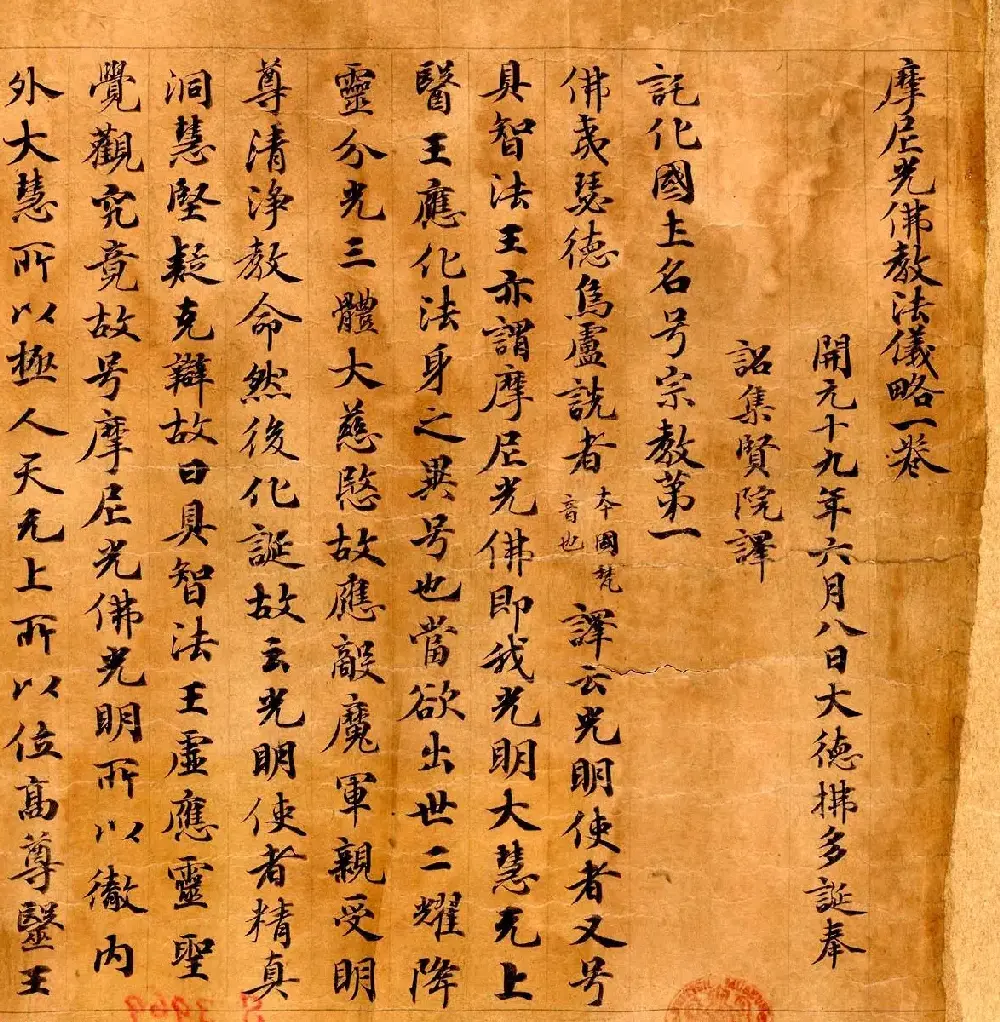 摩尼光佛教法儀略一卷
開元十九年六月八日大德拂多誕奉
詔集賢院譯
託化國土名号宗教第一
佛夷瑟德烏盧詵者本國梵音也譯云光明使者又号
具智法王亦謂摩尼光佛即我光明大慧无上
醫王應化法身之異号也當欲出世二耀降
靈分光三體大慈愍故應敵魔軍親受明
尊清淨教命然後化誕故云光明使者精真
洞慧堅疑克辯故曰具智法王虛應靈聖
覺觀究竟故号摩尼光佛光明所以徹內
外大慧所以極人天无上所以位高尊毉王
S 3969